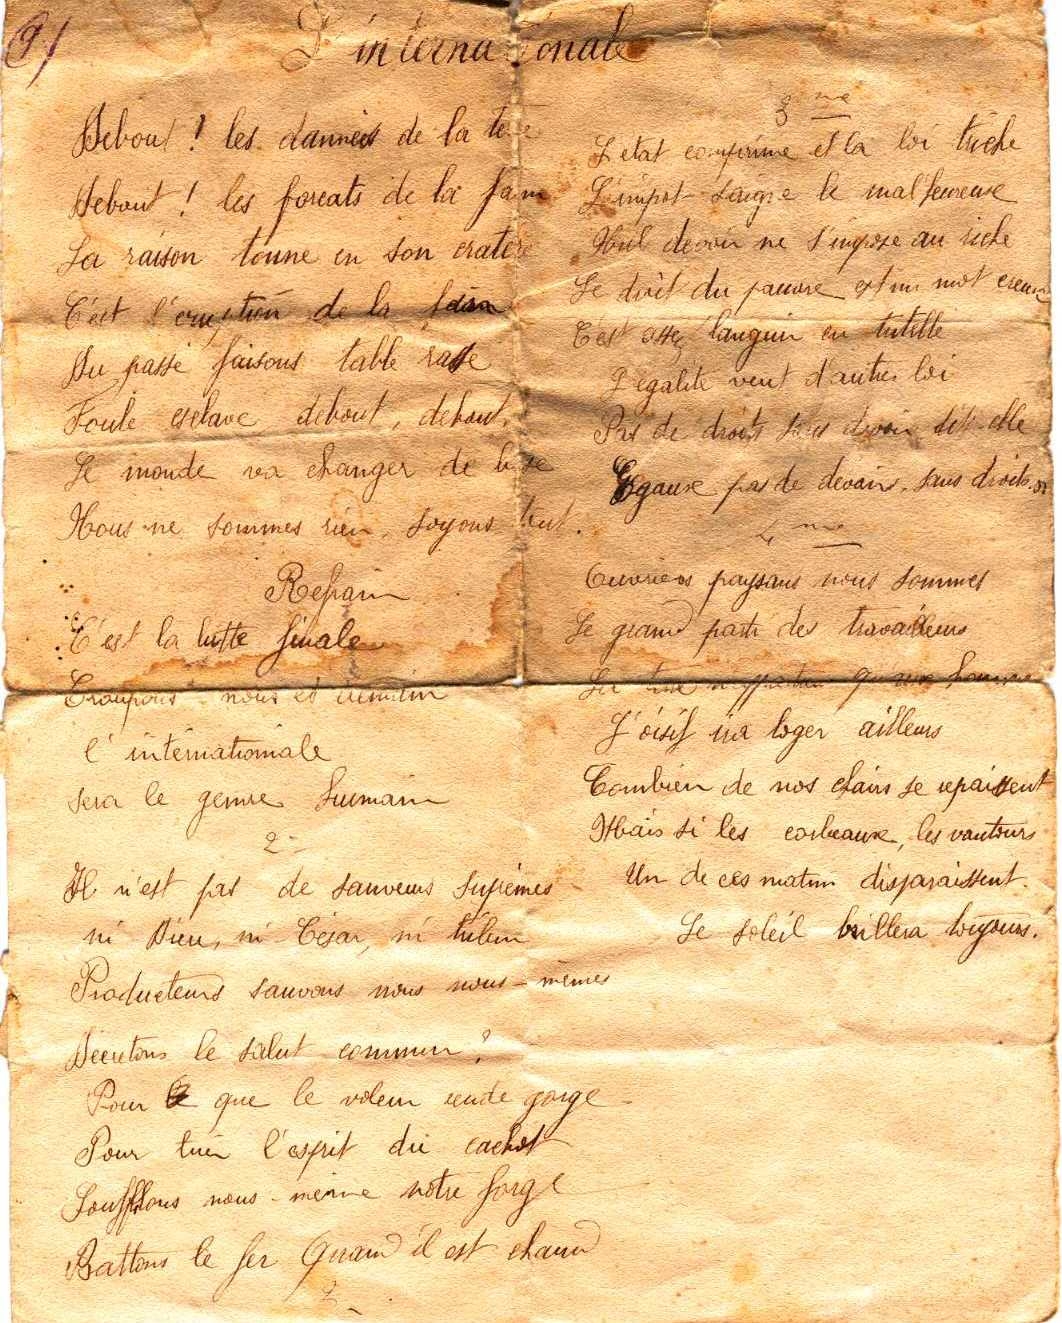 9/
L'internationale
Debout ! les dannées de la terre
Debout ! les forcats de la faim
La raison tonne en son cratère
C'est l'eruption de la faim
Du passé faisons table rase
Foule esclave debout, debout,
Le monde va changer de base
Nous ne sommes rien, soyons tout.
Refrain
C'est la lutte finale
Groupons nous et demain
l'internationale
sera le genre humain
2
Il n'est pas de sauveurs suprêmes
ni Dieu, ni César, ni tribun
Producteurs sauvons nous nous-mêmes
Décretons le salut commun ?
Pour que le voleur rende gorge
Pour tirer l'esprit du cachot
Soufflons nous-même notre forge
Battons le fer Quand il est chaud
3 me
L'etat comprime et la loi triche
L'impot saigne le malheureux
Nul devoir ne s'impose au riche
Le droit du pauvre est un mot creux
C'est assez languir en tutelle
L'egalité veut d'autres loi
Pas de droits sans devoir dit-elle
Egaux pas de devoirs sans droits
4 me
Ouvriers paysans nous sommes
Le grand parti des travailleurs
La terre n'appartient qu'aux hommes
L'oisif ira loger ailleurs
Combien de nos chairs se repaissent
Mais si les corbeaux, les vautours
Un de ces matin disparaissent.
Le soleil brillera toujours.